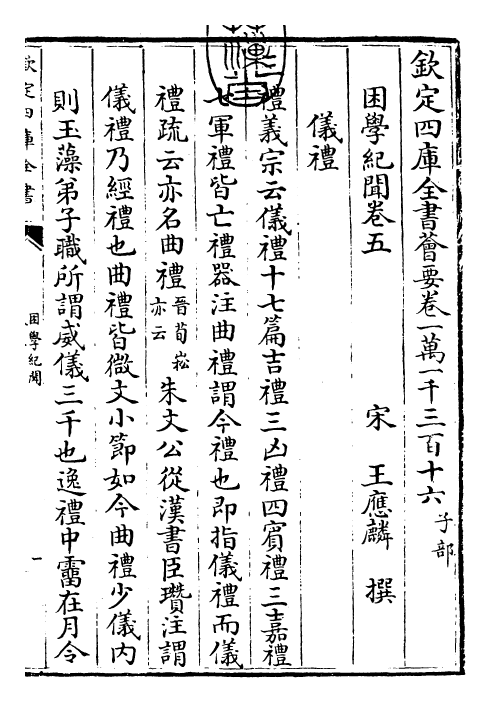 欽定四庫全書薈要卷一萬一千三百十六 子部
困學紀聞卷五
宋 王應麟 撰
儀禮
禮義宗云儀禮十七篇吉禮三凶禮四賓禮三嘉禮
七軍禮皆亡禮器注曲禮謂今禮也即指儀禮而儀
禮疏云亦名曲禮 晉荀崧亦云 朱文公從漢書臣瓚注謂
儀禮乃經禮也曲禮皆微文小節如今曲禮少儀內
則玉藻弟子職所謂威儀三千也逸禮中霤在月令
欽定四庫全書
困學紀聞
一